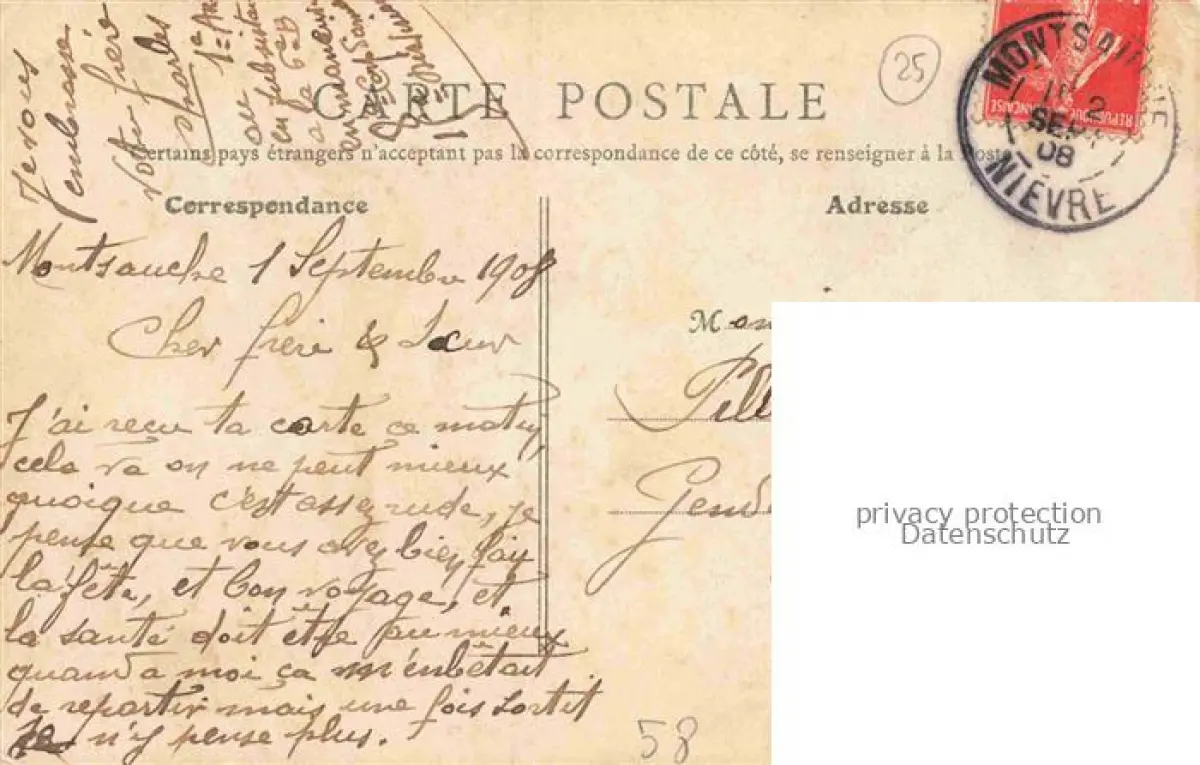 25
MONTSAUCHE
2
SEPT
08
NIEVRE
REPUBLIQUE FRANCAISE
CARTE POSTALE
Certains pays étrangers n'acceptant pas la correspondance de ce côté, se renseigner à la Poste
Correspondance
Adresse
Montsauche 1 Septembre 1908
Cher frère & Sœur
J'ai recu ta carte ce matin,
cela va on ne peut mieux
quoique c'est assez rude, je
pense que vous avez bien fait
la fête, et bon voyage, et
la santé doit être au mieux
quand a moi ça m'enbêtait
de repartir mais une fois sortit
n'y pense plus.
Je vous
embrasse
votre frère
Charles
M
Pill
Gend
58
privacy protection
Datenschutz